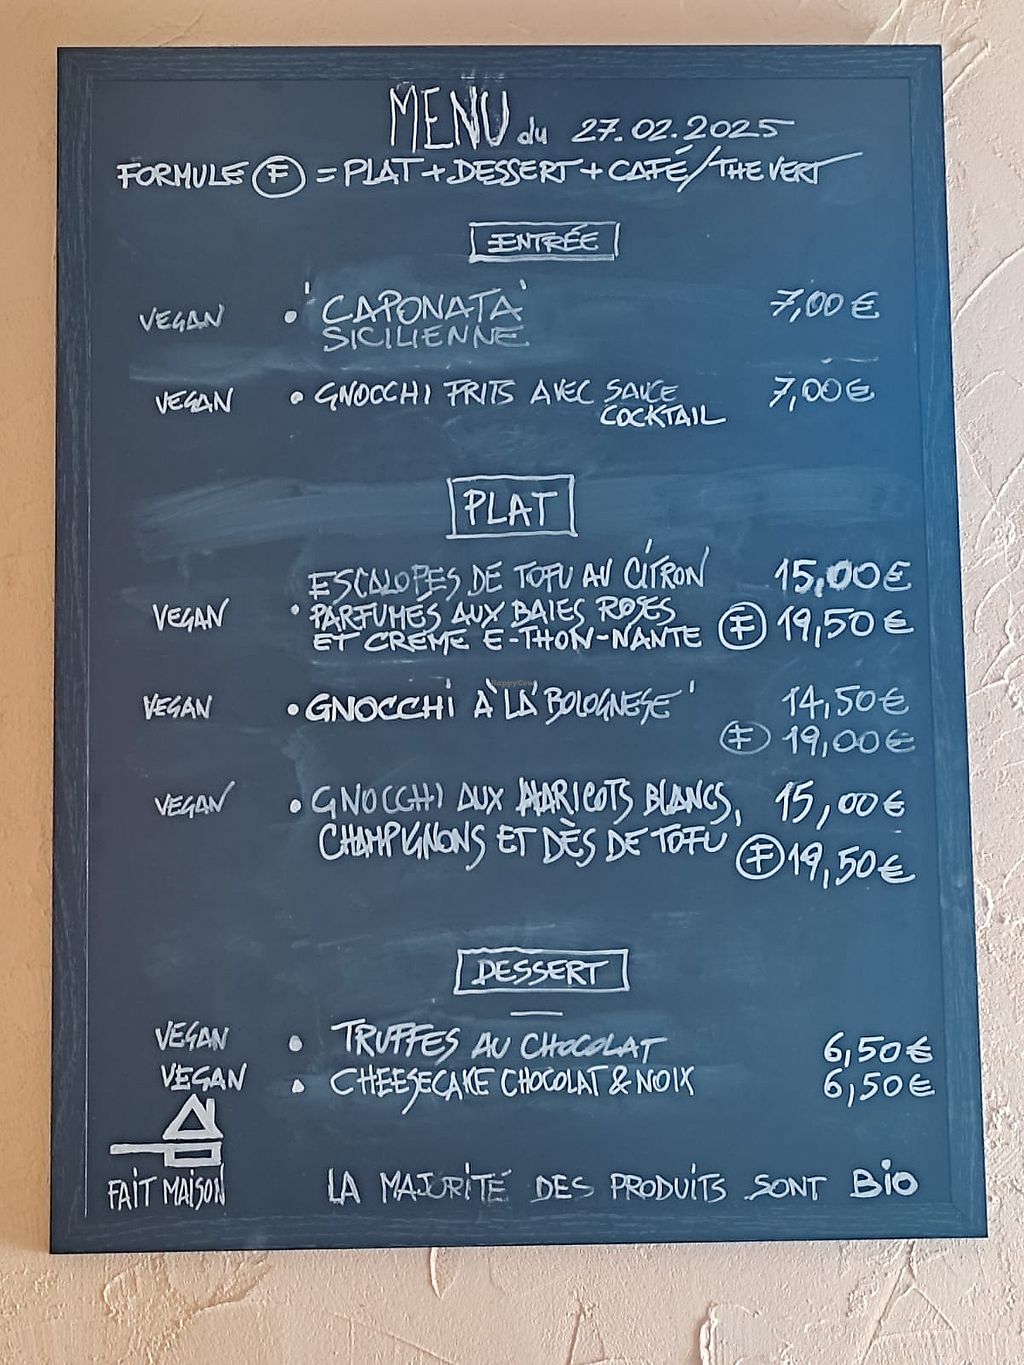 MENU du 27.02.2025
FORMULE F = PLAT + DESSERT + CAFÉ/THE VERT
ENTRÉE
VEGAN • 'CAPONATA' 7,00 €
SICILIENNE
VEGAN • GNOCCHI FRITS AVEC SAUCE 7,00 €
COCKTAIL
PLAT
ESCALOPES DE TOFU AU CITRON 15,00 €
VEGAN • PARFUMÉS AUX BAIES ROSES F 19,50 €
ET CRÈME E-THON-NANTE
HappyCow
VEGAN • GNOCCHI À LA 'BOLOGNESE' 14,50 €
F 19,00 €
VEGAN • GNOCCHI AUX HARICOTS BLANCS, 15,00 €
CHAMPIGNONS ET DÈS DE TOFU F 19,50 €
DESSERT
VEGAN • TRUFFES AU CHOCOLAT 6,50 €
VEGAN • CHEESECAKE CHOCOLAT & NOIX 6,50 €
FAIT MAISON LA MAJORITÉ DES PRODUITS SONT BIO